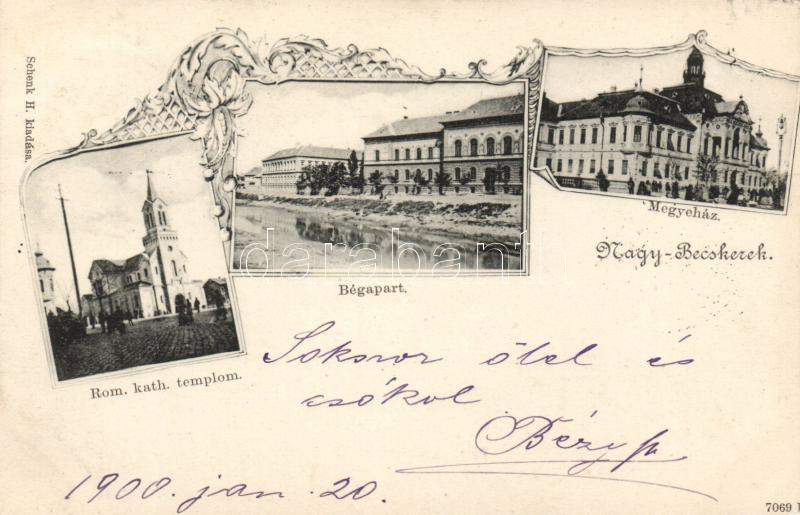 Schenk H. kiadása.
Rom. kath. templom.
Bégapart.
Megyeház.
Nagy-Becskerek.
darabanth
Sokszor ölel és
csókol
1900. jan. 20.
7069